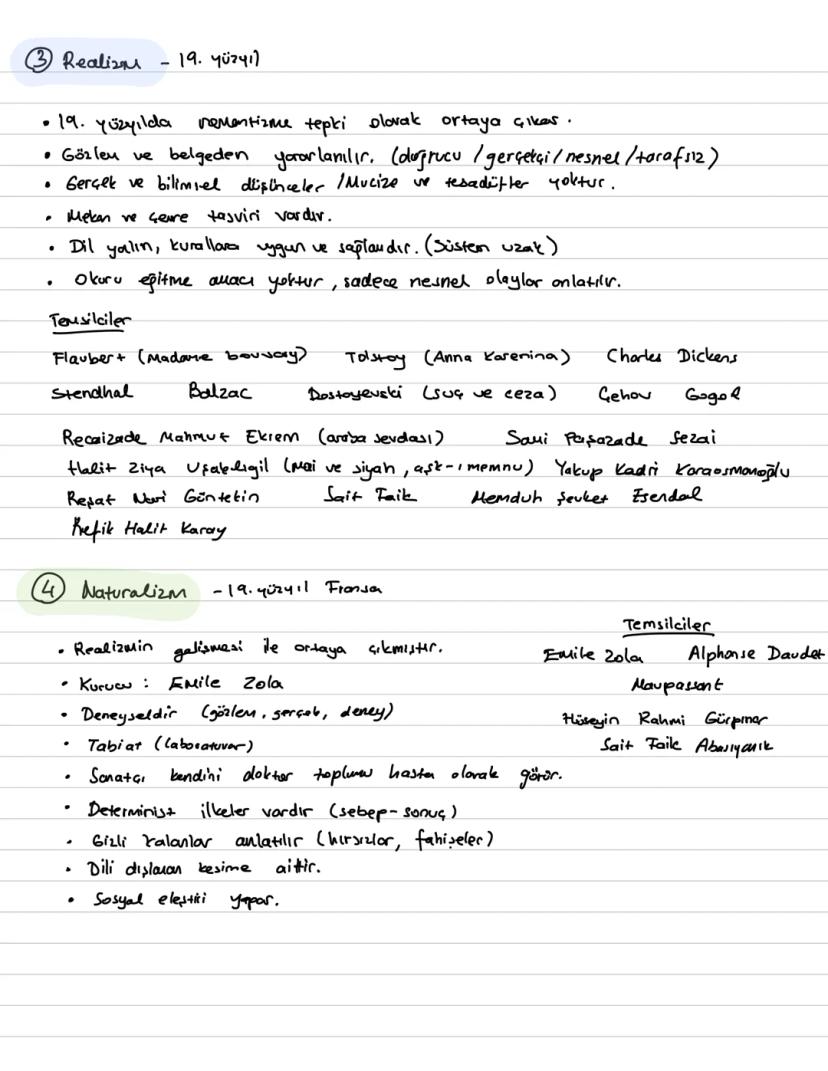 ③ Realizm - 19. yüzyıl
• 19. yüzyılda romantizme tepki olarak ortaya çıkar.
• Gözlem ve belgeden yararlanılır. (doğrucu / gerçekçi / nesnel / tarafsız)
• Gerçek ve bilimsel düşünceler / Mucize ve tesadüfler yoktur.
• Mekan ve çevre tasviri vardır.
• Dil yalın, kurallara uygun ve sağlamdır. (Süsten uzak)
• Okuru eğitme amacı yoktur, sadece nesnel olaylar anlatılır.
Temsilciler
Flaubert (Madame bovvary) Tolstoy (Anna Karenina) Charles Dickens
Stendhal Balzac Dostoyevski (suç ve ceza) Çehov Gogol
Recaizade Mahmut Ekrem (araba sevdası) Sami Paşazade Sezai
Halit Ziya Uşaklıgil (Mai ve siyah, aşk-ı memnu) Yakup Kadri Karaosmanoğlu
Reşat Nuri Güntekin Sait Faik Memduh Şevket Esendal
Refik Halit Karay
④ Naturalizm - 19. yüzyıl Fransa
• Realizmin gelişmesi ile ortaya çıkmıştır.
• Kurucu : Emile Zola
• Deneyseldir (gözlem, gerçek, deney)
• Tabiat (laboratuvar)
• Sanatçı kendini doktor toplumu hasta olarak görür.
• Determinist ilkeler vardır (sebep-sonuç)
• Gizli kalanlar anlatılır (hırsızlar, fahişeler)
• Dili dışlanan kesime aittir.
• Sosyal eleştiri yapar.
Temsilciler
Emile Zola Alphonse Daudet
Maupassant
Hüseyin Rahmi Gürpınar
Sait Faik Abasıyanık